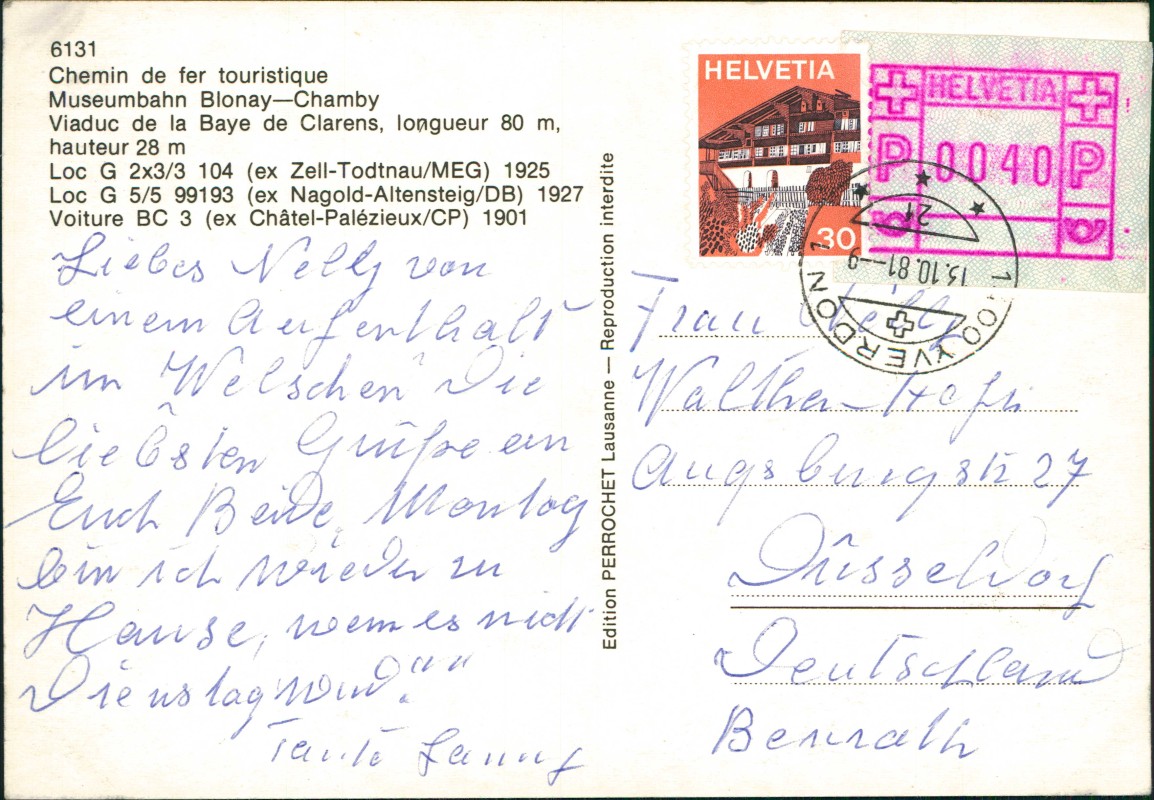 6131
Chemin de fer touristique
Museumbahn Blonay—Chamby
Viaduc de la Baye de Clarens, longueur 80 m,
hauteur 28 m
Loc G 2x3/3 104 (ex Zell-Todtnau/MEG) 1925
Loc G 5/5 99193 (ex Nagold-Altensteig/DB) 1927
Voiture BC 3 (ex Châtel-Palézieux/CP) 1901
Liebes Nelly von
einem Aufenthalt
im Welschen die
liebsten Grüße an
Euch Beide, Montag
bin ich wieder zu
Hause, wenn es nicht
Dienstag wird.
Tante
Edition PERROCHET Lausanne — Reproduction interdite
HELVETIA
30
HELVETIA
P 0040 P
21
15.10.81—9
1400 YVERDON 1
Frau Nelly
Walther-
Augsburgstr 27
Düsseldorf
Deutschland
Benrath